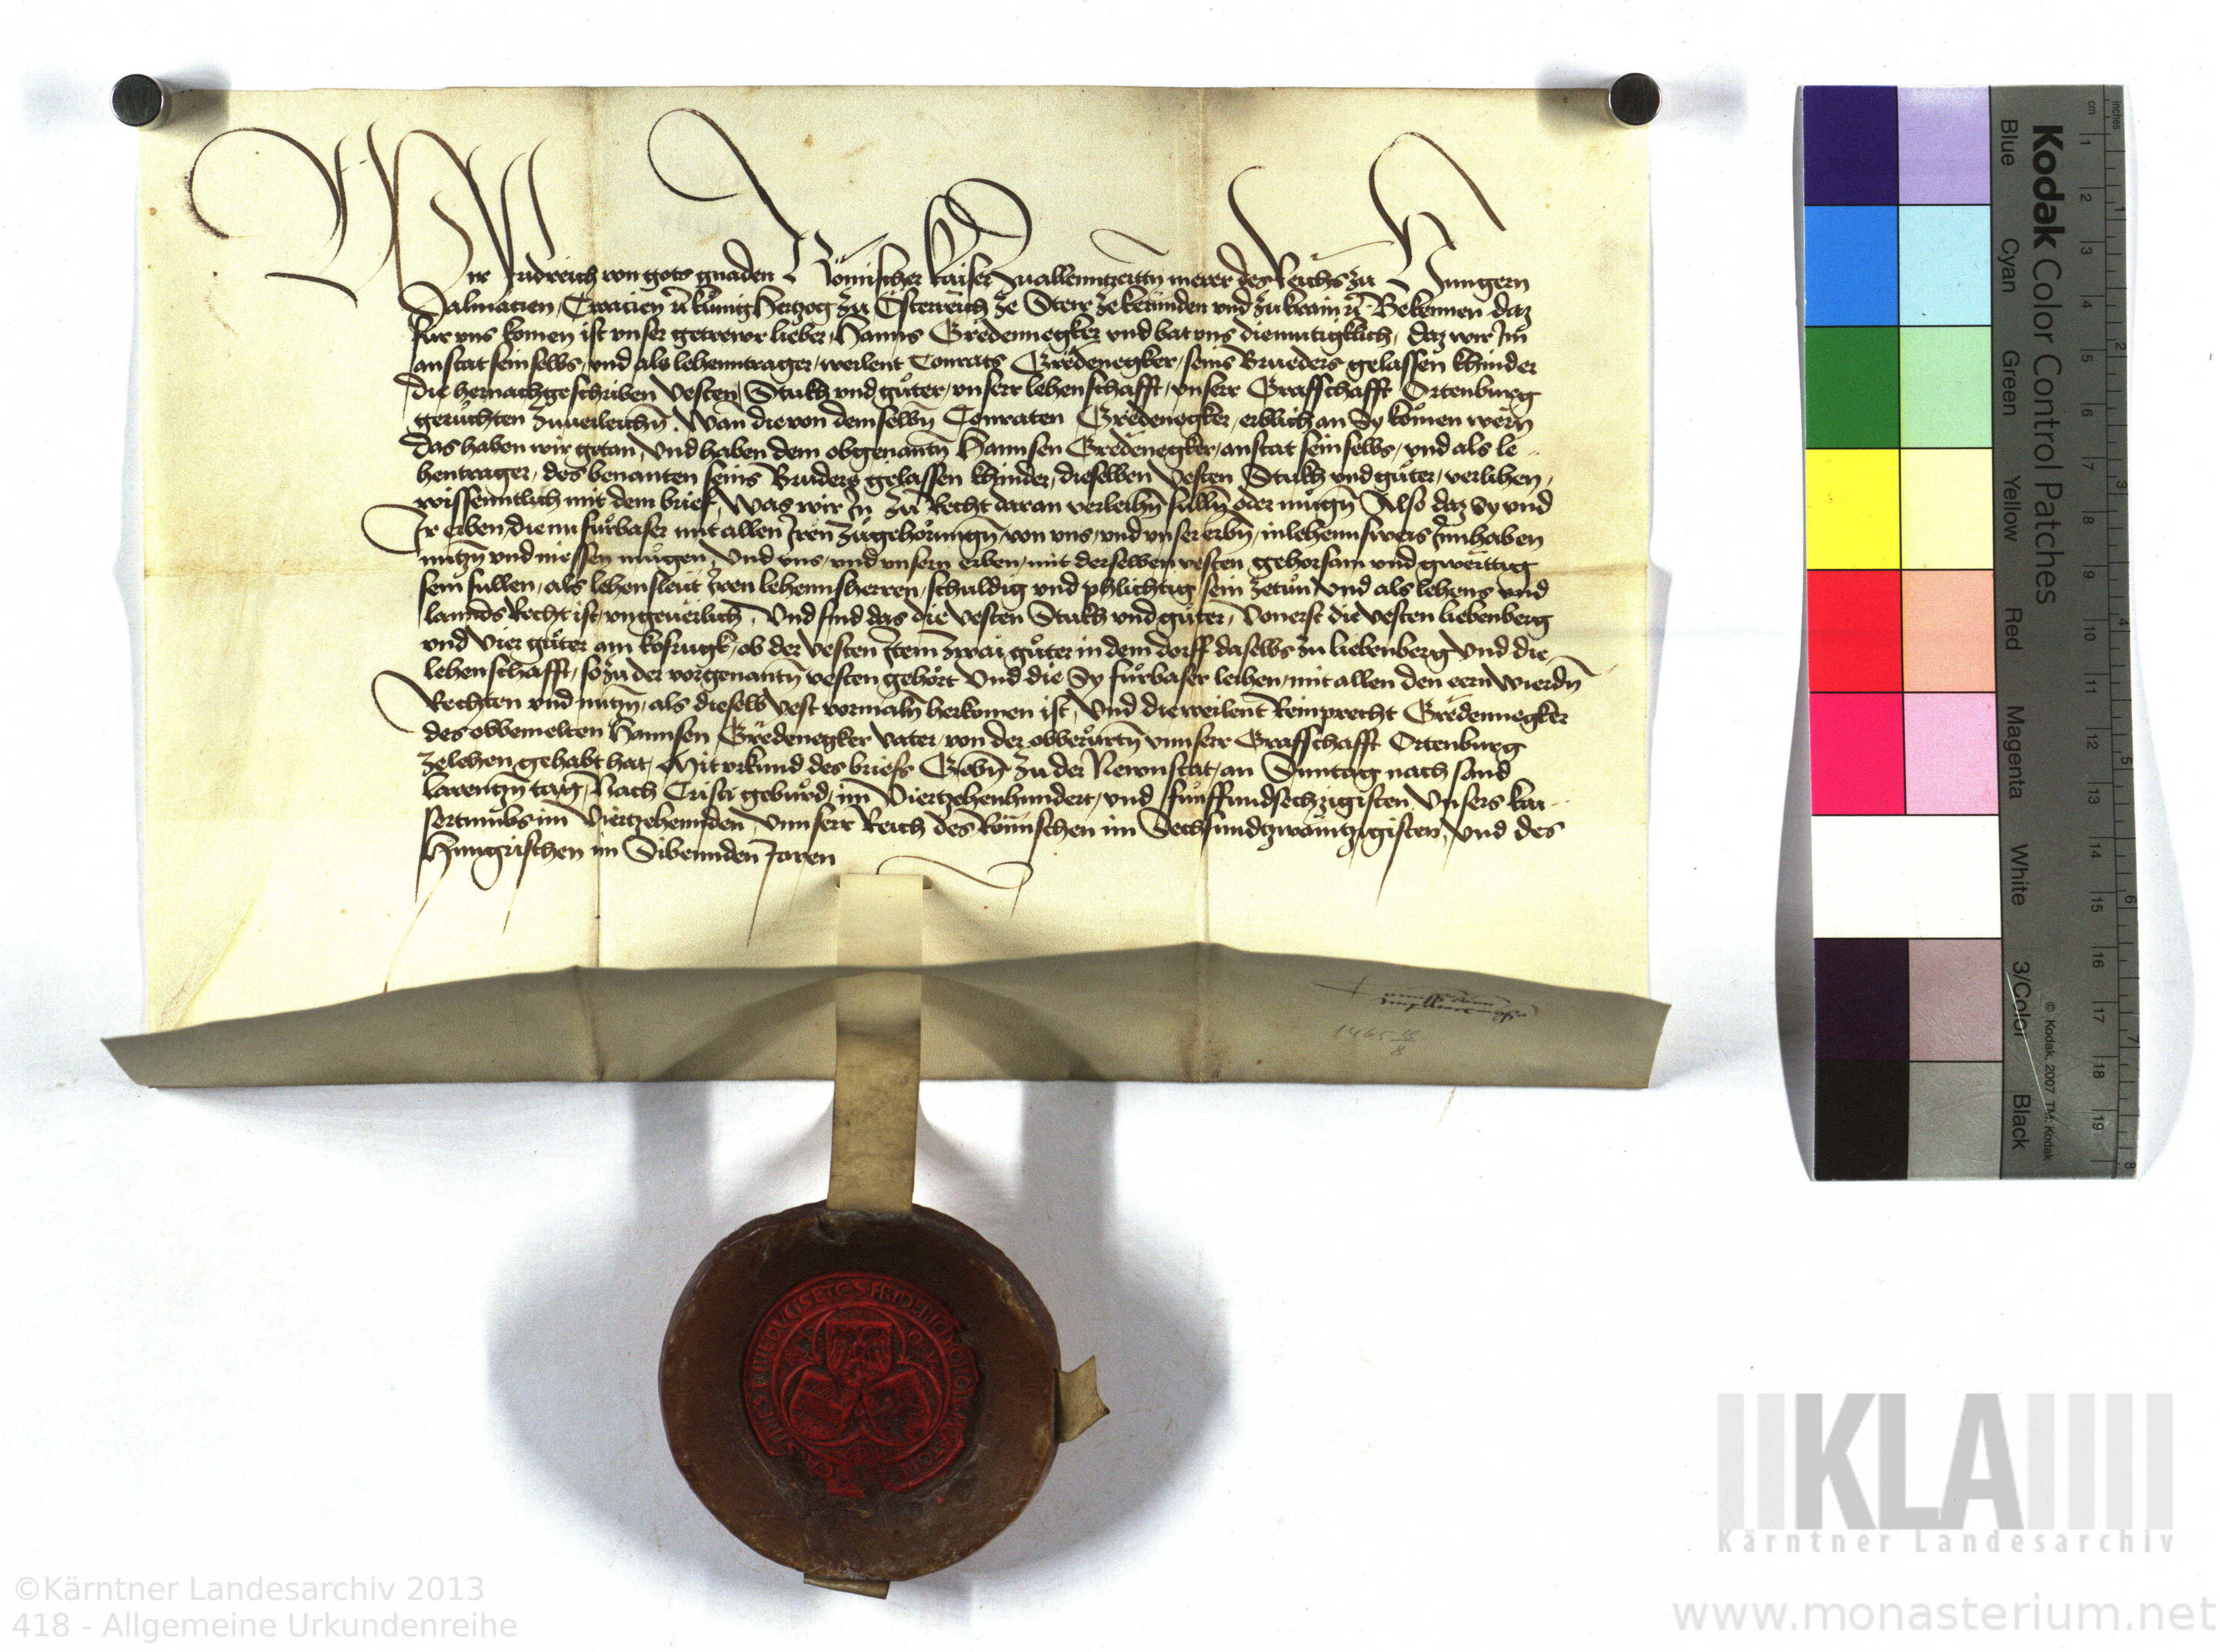 Wir Fridreich von gots gnaden Römischer kaiser zuallenntzeittn merer des Reichs zu Hungern
Dalmacien, Croacien ec kunig Hertzog zu Österreich ze Steyr ze kernnden und zu krain ec Bekennen daz
für uns komen ist unser getrewr lieber, Hanns Gredennegker und bat uns diemutigklich, daz wir Im
anstat sein selbs, und als lehenntrager, weilent Conrats Gredenegker, seins Brueders gelassen khinder
die hernachgeschriben Vesten Stukh und güter, unserr lehenschafft, unserr Grafschafft Ortenburg
geruchten zuverleichn. Wan die von demselbn Conraten Gredenegker, erblich an Sy komen wern
das haben wir getan, Und haben dem obgenantn Hannsen Gredenegker, anstat sein selbs, und als le-
hentrager, des benanten seins Bruders gelassen khinder, dieselben Vesten Stukh und güter, verlihen,
wissenntlich mit dem brief, Was wir In zu Recht daran verleihn sulln oder mugn Also daz Sy und
Ir erben, die nu fürbaser mit allen Iren zugehörungn, von uns, und unsern erbn, in lehennsweis Innhaben
nutzn und niessen mugen, Und uns, und unsern erben, mit derselben vesten gehorsam und gwerttig
sein sullen, als lehensleut Iren lehennsherren, schuldig und phlichtig sein zetun, Und als lehens und
lannds Recht ist, ungeverlich, Und sind das die Vesten Stukh und güter, Vonerst die Vesten liebenberg
und Vier güter am kosrugk, ob der Vesten Item zwai güter in dem dorff daselbs zu liebenberg Und die
lehenschafft, so zu der vorgenantn vesten gehört Und die Sy fürbaser leihen, mit allen den eern wierdn
Rechten und nutzn, als dieselb Vest vormaln herkomen ist, Und die weilent Reinprecht Gredennegker
des obbemelten Hannsen Gredenegker vater, von der obberurtn unnserr Grafschafft Ortenburg
zelehen gehabt hat, Mit urkund des briefs Gebn zu der Newnstat, an Sunntag nach sand
larentzn tag, Nach Cristi geburd, im Viertzehenhundert, und fünffundsechzigisten Unsers kai-
sertumbs im Viertzehennden, unnserr Reich des Römischen im Sechsundzwaintzigisten, Und des
Hungrischen im Sibennden Jaren
1465 18/8
Kodak Color Control Patches
Blue Cyan Green Yellow Red Magenta White 3/Color Black
© Kodak, 2007 TM: Kodak
inches 1 2 3 4 5 6 7 8
cm 1 2 3 4 5 6 7 8 9 10 11 12 13 14 15 16 17 18 19
KLA
Kärntner Landesarchiv
©Kärntner Landesarchiv 2013
418 - Allgemeine Urkundenreihe
www.monasterium.net